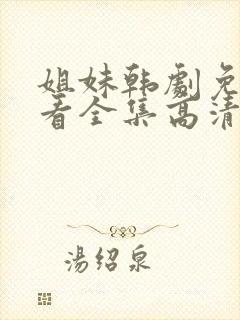 姐妹韩劇免
看全集高清
湯绍泉